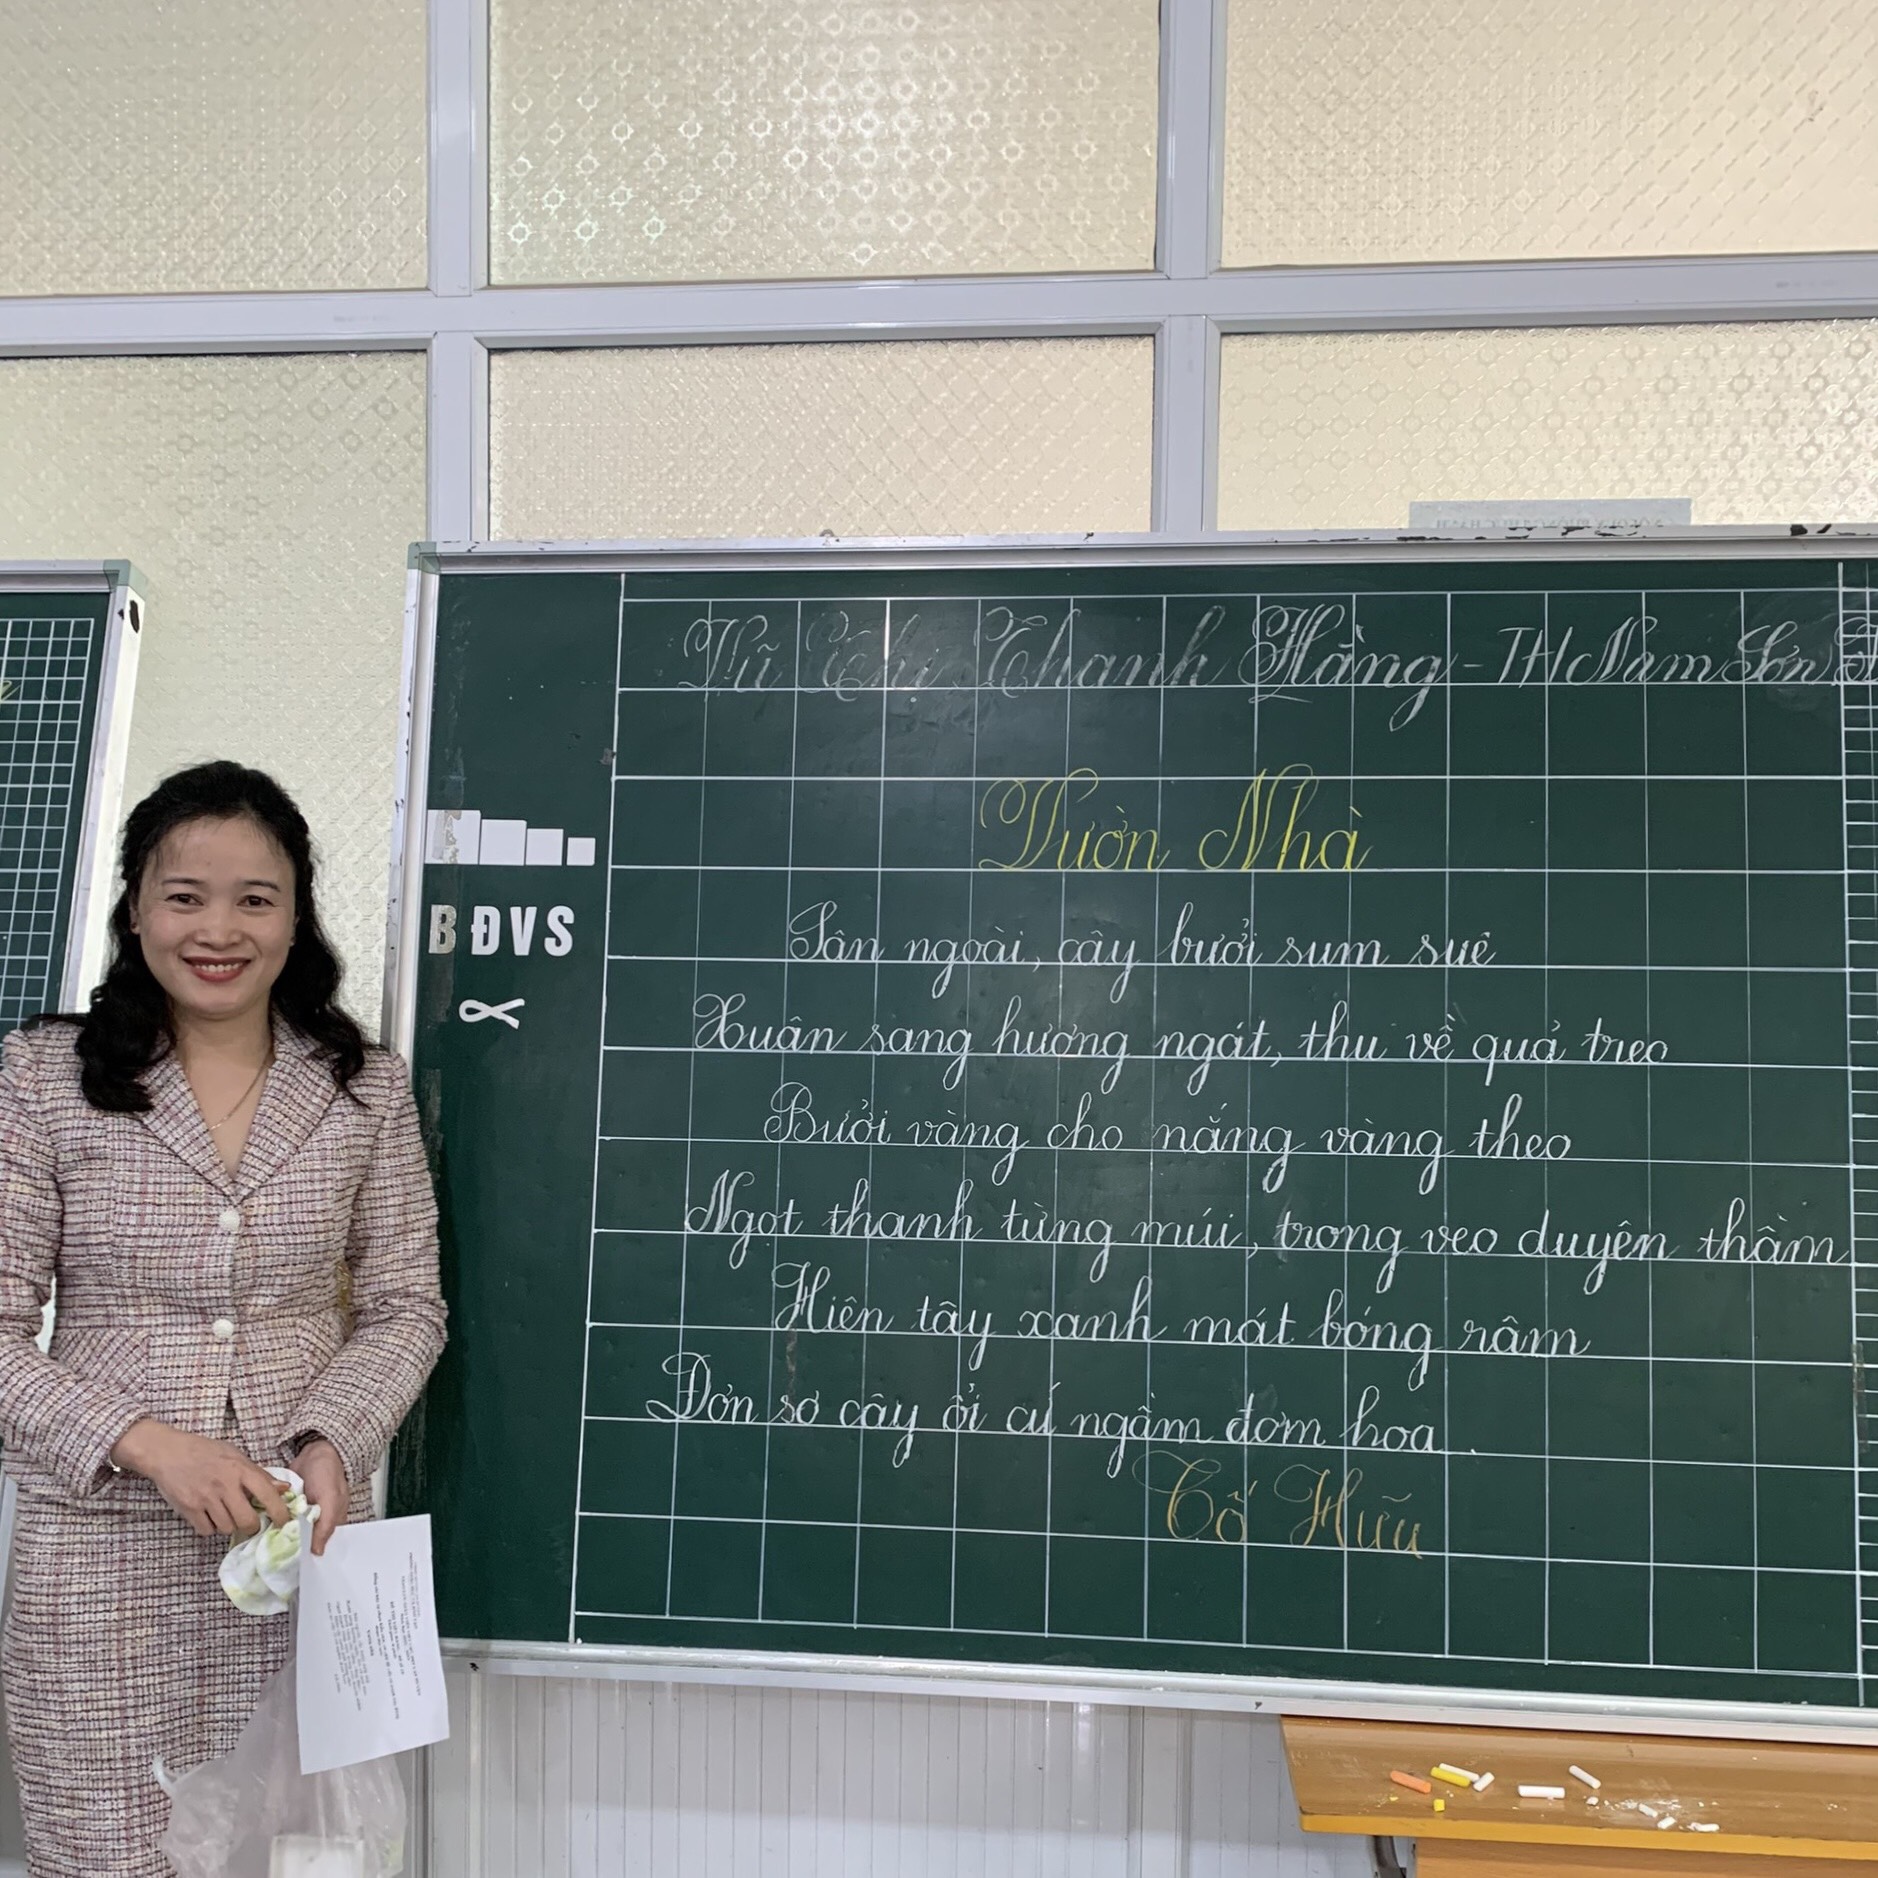 Vũ Thị Thanh Hằng - TH Nam Sơn
Vườn Nhà
BĐVS
Sân ngoài, cây bưởi sum suê
Xuân sang hương ngát, thu về quả treo
Bưởi vàng cho nắng vàng theo
Ngọt thanh từng múi, trong veo duyên thầm
Hiên tây xanh mát bóng râm
Đơn sơ cây ổi cứ ngầm đơm hoa.
Tố Hữu